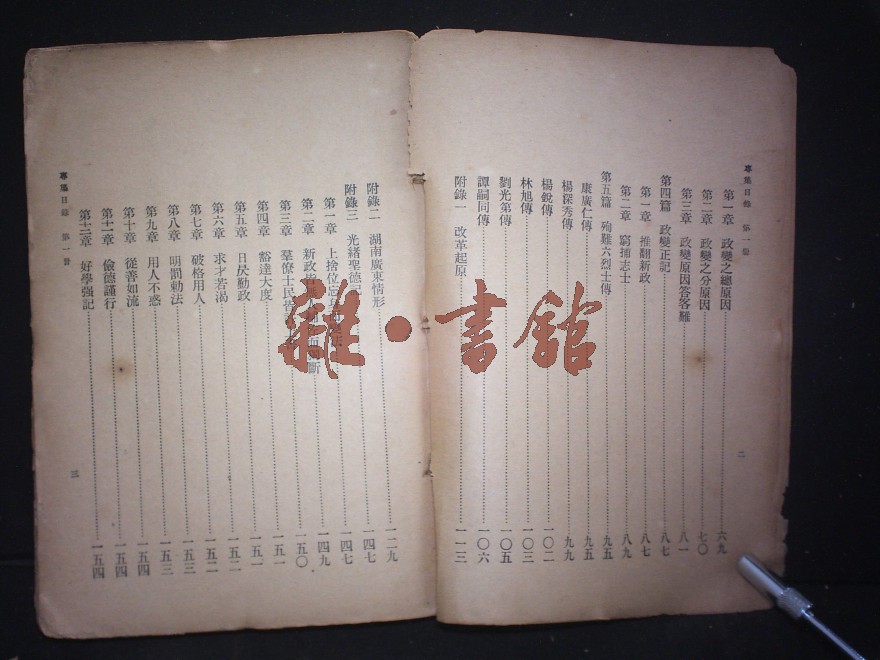 專集目錄 第一册
第一章 政變之總原因 六九
第二章 政變之分原因 七〇
第三章 政變原因答客難 八一
第四篇 政變正記 八七
第一章 推翻新政 八七
第二章 窮捕志士 八九
第五篇 殉難六烈士傳 九五
康廣仁傳 九五
楊深秀傳 九九
楊銳傳 一〇二
林旭傳 一〇三
劉光第傳 一〇五
譚嗣同傳 一〇六
附錄一 改革起原 一一三
二
附錄二 湖南廣東情形 一二九
附錄三 光緒聖德 一四七
第一章 上捨位忘 一四七
第二章 新政皆 斷 一四九
第三章 羣僚士民 一五〇
第四章 豁達大度 一五一
第五章 日昃勤政 一五一
第六章 求才若渴 一五二
第七章 破格用人 一五二
第八章 明罰勅法 一五三
第九章 用人不惑 一五三
第十章 從善如流 一五四
第十一章 儉德謹行 一五四
第十二章 好學强記 一五四
專集目錄 第一册
三
雜·書館